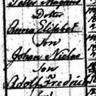 Doter
Anna Elisabet
Son
Johan Niclas
Son
Adolf Fredric